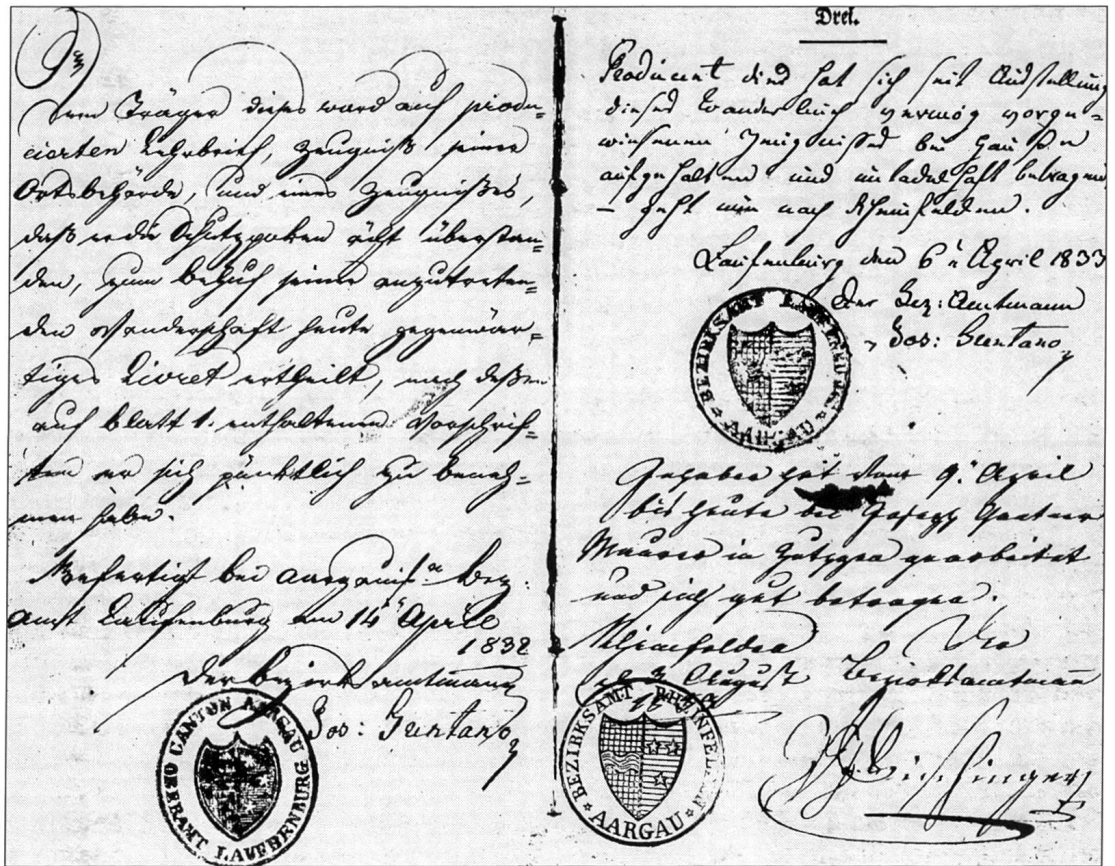 Dem Träger dieses ward auf produ=
cierten Lehrbrief, Zeugniß seiner
Ortsbehörde, und eines Zeugnißes,
daß er die Schutzpoken ächt überstan=
den, zum Behuf seiner anzutreten=
den Wanderschaft heute gegenwär=
tiges Livret ertheilt, nach deßen
auf Blatt 1. enthaltenen Vorschrif=
ten er sich pünktlich zu beneh=
men habe.
Ausgefertigt bei aargauisch. Bez:
Amt Laufenburg den 14 April
1832
Der Bezirksamtmann
Jos:
OBERAMT LAUFFENBURG CANTON AARGAU
Drei.
Producent dies hat sich seit Ausstellung
dieses Wanderbuch vermög vorge=
wiesenem Zeugnisses bei Hause
aufgehalten und untadelhaft betragen
– geht nun nach Rheinfelden.
Laufenburg den 6 April 1833
Der Bez: Amtmann
Jos:
BEZIRKSAMT LAUFFENBURG AARGAU
Inhaber hat vom 9. April
bis heute bei Joseph
Maurer in gearbeitet
und sich gut betragen.
Rheinfelden Der
August Bezirksamtmann
BEZIRKSAMT RHEINFELDEN AARGAU